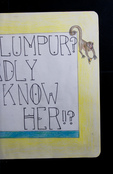 LUMPUR?
ADLY
KNOW
HER!?